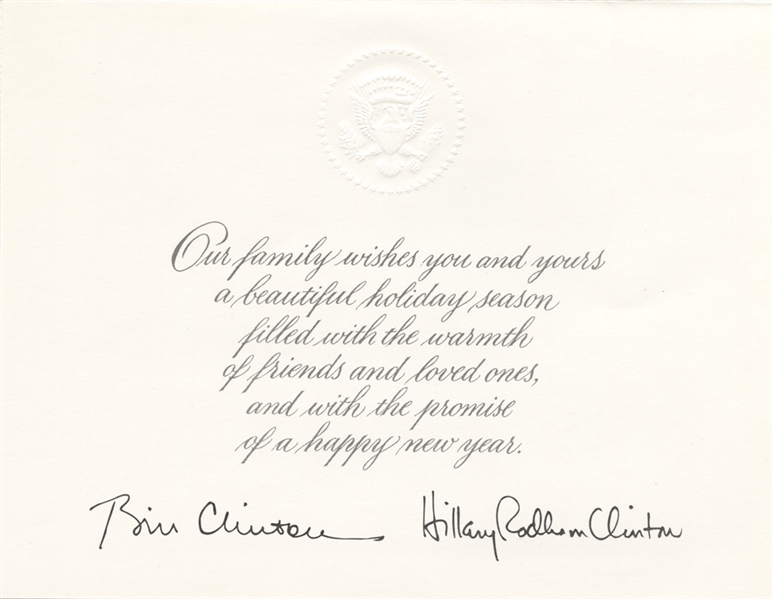 Our family wishes you and yours
a beautiful holiday season
filled with the warmth
of friends and loved ones,
and with the promise
of a happy new year.
Bill Clinton Hillary Rodham Clinton